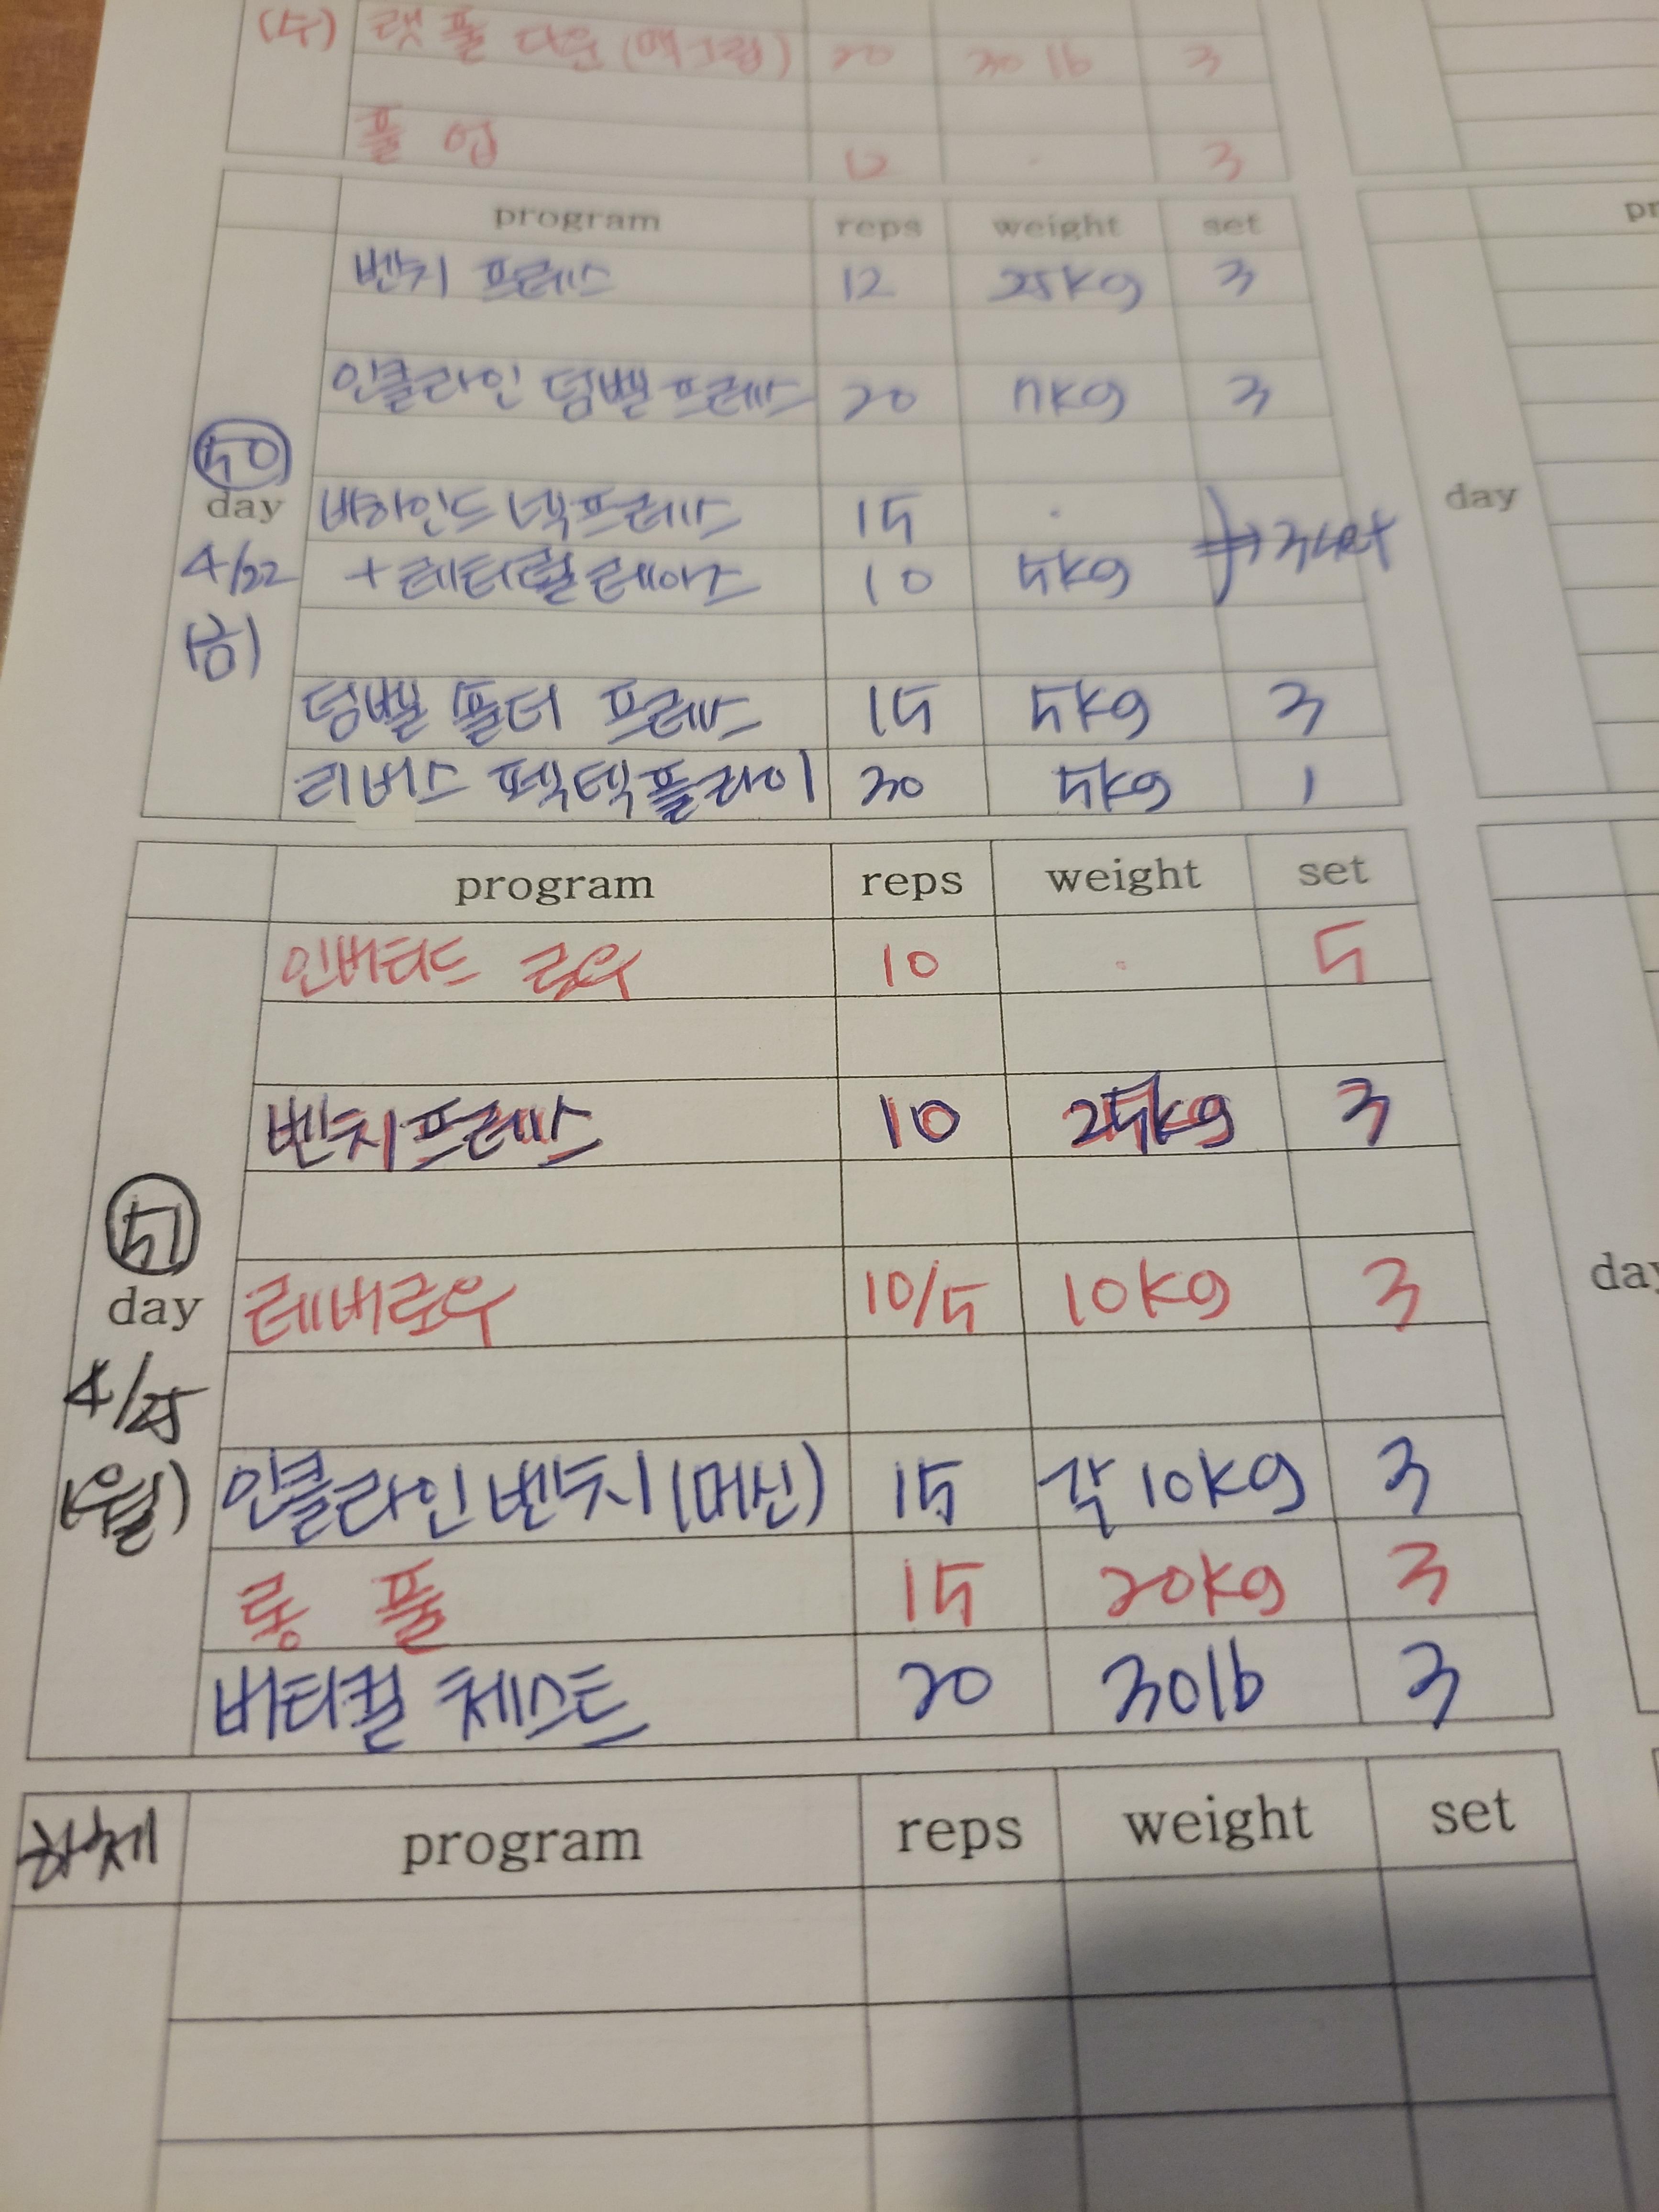 (수) 랫 풀 다운 (맥그립) 20 30 lb 3
풀 업 12 . 3
program reps weight set
벤치 프레스 12 25kg 3
인클라인 덤벨 프레스 20 7kg 3
50
day
4/22
(금)
비하인드 넥프레스 15 .
+ 레터럴 레이즈 10 5kg → 3set
덤벨 숄더 프레스 15 5kg 3
리버스 펙덱플라이 30 5kg 1
program reps weight set
인버티드 로우 10 . 5
벤치프레스 10 25kg 3
51
day
4/25
(월)
레버로우 10/5 10kg 3
인클라인벤치(머신) 15 각 10kg 3
롱 풀 15 20kg 3
버티컬 체스트 20 30lb 3
하체 program reps weight set
pr
day
day